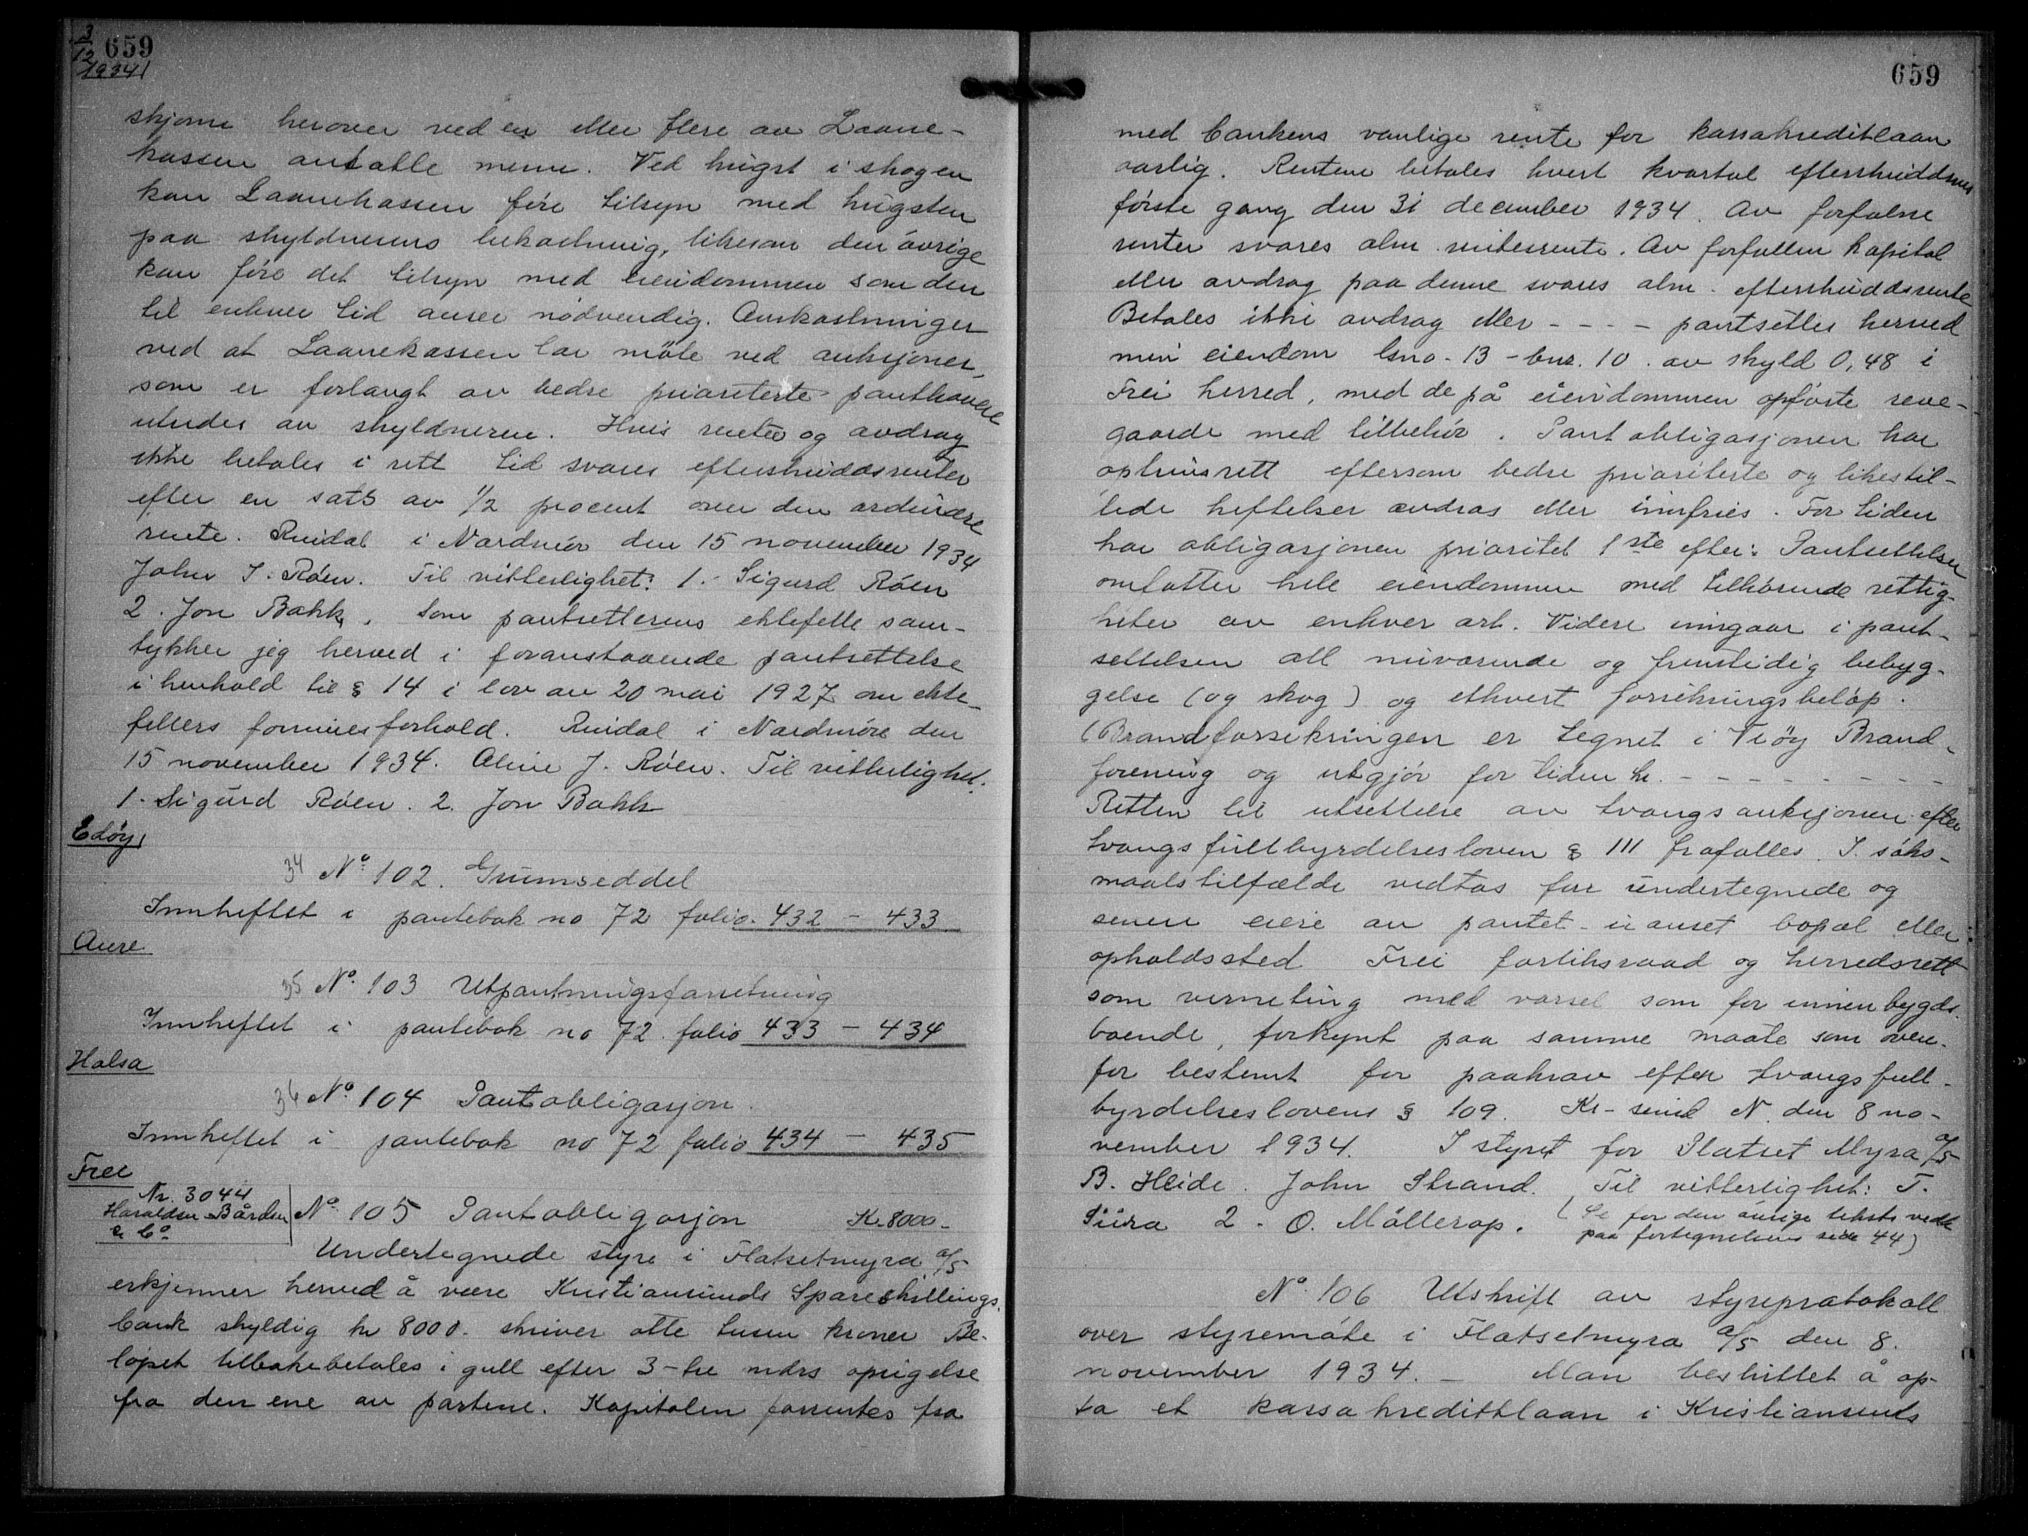 3/12 1934 659
skjønn herover ved en eller flere av Laane-
kassen antatte menn. Ved hugst i skogen
kan Laanekassen føre tilsyn med hugsten
paa skyldnerens bekostning, likesom den øvrige
kan føre det tilsyn med eiendommen som den
til enhver tid anser nødvendig. Omkostninger
ved at Laanekassen lar møte ved auksjoner,
som er forlangt av bedre prioriterte panthavere
utredes av skyldneren. Hvis renter og avdrag
ikke betales i rett tid svares efterskuddsrenter
efter en sats av 1/2 procent over den ordinære
rente. Rindal i Nordmør den 15 november 1934
John J. Røen. Til vitterlighet: 1. Sigurd Røen
2. Jon Bakk. Som pantsetterens ektefelle sam-
tykker jeg herved i foranstaaende pantsettelse
i henhold til § 14 i lov av 20 mai 1927 om ekte-
fellers formuesforhold. Rindal i Nordmøre den
15 november 1934. Oline J. Røen. Til vitterlighet:
1. Sigurd Røen. 2. Jon Bakk
Edøy
34 No 102. Grunnseddel
Innheftet i pantebok no 72 folio 432 – 433
Aure
35 No 103 Utpantningsforretning
Innheftet i pantebok no 72 folio 433 – 434
Halsa
36 No 104 Pantobligasjon.
Innheftet i pantebok no 72 folio 434 – 435
Frei
Nr. 3044
Haraldsen Bårdsen
& Co
No 105 Pantobligasjon Kr. 8000-
Undertegnede styre i Flatsetmyra a/s
erkjenner herved å være Kristiansunds Spareskillings-
bank skyldig kr 8000. skriver otte tusen kroner Be-
løpet tilbakebetales i gull efter 3-tre mdrs opsigelse
fra den ene av partene. Kapitalen forrentes fra
659
med bankens vanlige rente for kassakredittlaan
aarlig. Rentene betales hvert kvartal efterskuddsvis
første gang den 31 december 1934. Av forfalne
renter svares alm. rentesrente. Av forfallen kapital
eller avdrag paa denne svares alm. efterskuddsrente
Betales ikke avdrag eller - - - - pantsettes herved
min eiendom Gno. 13 - bnr. 10 av skyld 0,48 i
Frei herred, med de på eiendommen opførte reve-
gaarde med tilbehør. Pantobligasjonen har
optrinsrett eftersom bedre prioriterte og likestil-
lede heftelser avdras eller innfries. For tiden
har obligasjonen prioritet 1ste efter: Pantsettelsen
omfatter hele eiendommen med tilhørende rettig-
heter av enhver art. Videre inngaar i pant-
settelsen all nuværende og fremtidig bebyg-
gelse (og skog) og ethvert forsikringsbeløp.
(Brandforsikringen er tegnet i Frøy Brand-
forening og utgjør for tiden kr. - - - - - - - -
Retten til utsettelse av tvangsauksjonen efter
tvangsfullbyrdelsesloven § 111 frafalles. I søks-
maalstilfælde vedtas for undertegnede og
senere eiere av pantet - uanset bopæl eller
opholdssted Frei forliksraad og herredsrett
som verneting med varsel som for innenbygds-
boende, forkynt paa samme maate som oven-
for bestemt for paakrav efter tvangsfull-
byrdelseslovens § 109. Kr-sund N. den 8 no-
vember 1934. I styret for Flatset Myra a/s
B. Heide. John Strand. Til vitterlighet: T.
Siira 2. O. Møllerop. (Se for den øvrige teksts vedk
paa fortegnelsens side 44)
No 106 Utskrift av styreprotokoll
over styremøte i Flatsetmyra a/s den 8.
november 1934. – Man besluttet å op-
ta et kassakredittlaan i Kristiansunds